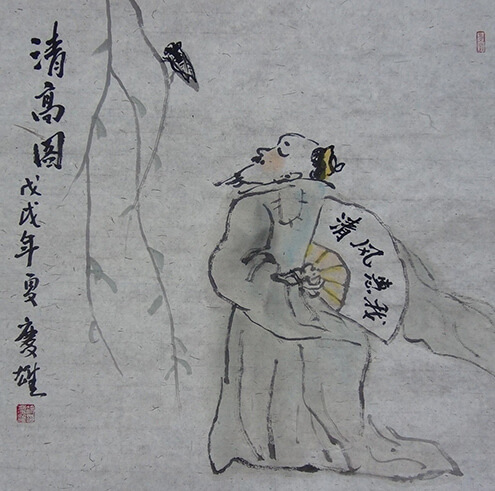 清高图
戊戌年夏 慶雄
清风惠我